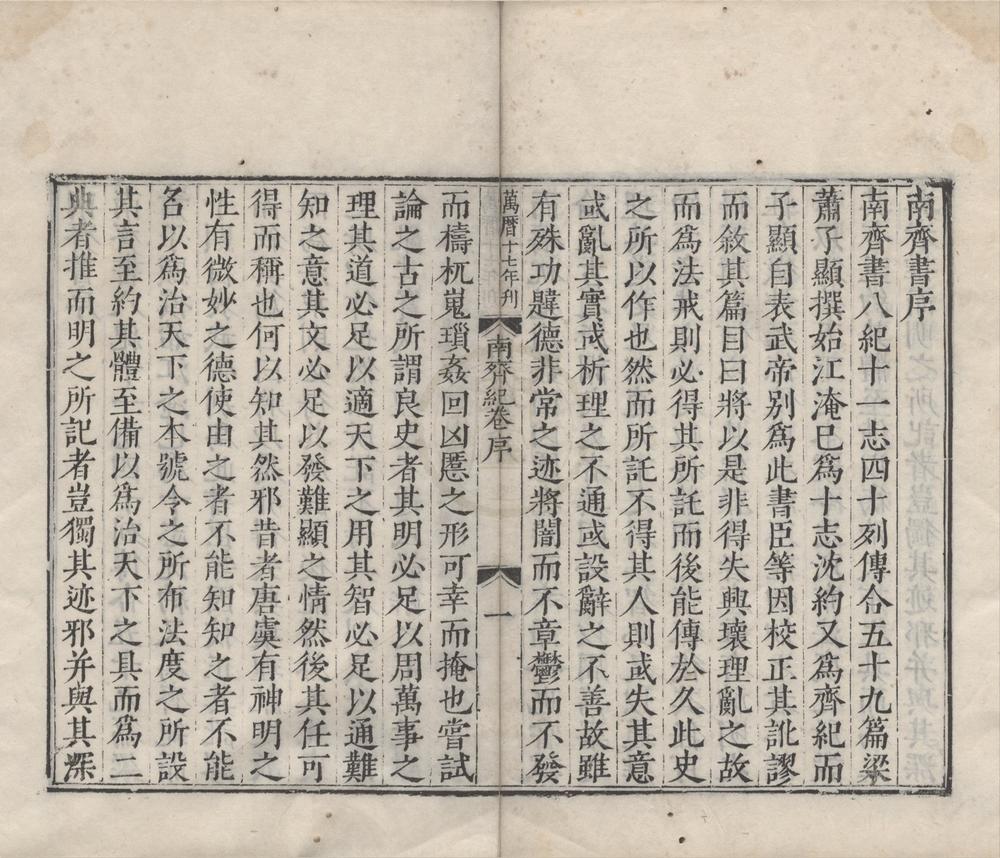 南齊書序
南齊書八紀十一志四十列傳合五十九篇梁
蕭子顯撰始江淹巳爲十志沈約又爲齊紀而
子顯自表武帝别爲此書臣等因校正其訛謬
而敘其篇目曰將以是非得失興壞理亂之故
而爲法戒則必得其所託而後能傳於久此史
之所以作也然而所託不得其人則或失其意
或亂其實或析理之不通或設辭之不善故雖
有殊功韙德非常之迹將闇而不章鬱而不發
萬曆十七年刊
南齊紀卷序
一
而檮杌嵬瑣姦回凶慝之形可幸而掩也嘗試
論之古之所謂良史者其明必足以周萬事之
理其道必足以適天下之用其智必足以通難
知之意其文必足以發難顯之情然後其任可
得而稱也何以知其然邪昔者唐虞有神明之
性有微妙之德使由之者不能知知之者不能
名以爲治天下之本號令之所布法度之所設
其言至約其體至備以爲治天下之具而爲二
典者推而明之所記者豈獨其迹邪并與其深